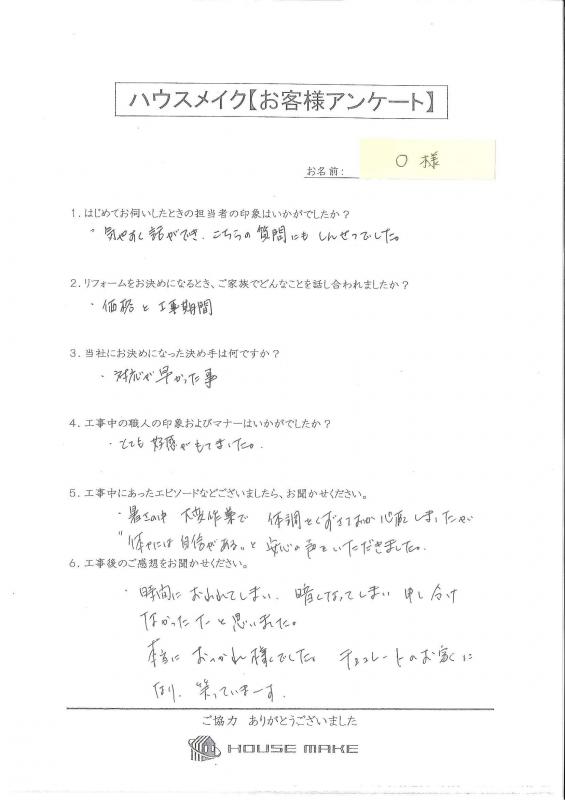 ハウスメイク【お客様アンケート】
お名前： O 様
1．はじめてお伺いしたときの担当者の印象はいかがでしたか？
・気やすく話ができ、こちらの質問にもしんせつでした。
2．リフォームをお決めになるとき、ご家族でどんなことを話し合われましたか？
・価格と工事期間
3．当社にお決めになった決め手は何ですか？
・対応が早かった事
4．工事中の職人の印象およびマナーはいかがでしたか？
・とても好感がもてました。
5．工事中にあったエピソードなどございましたら、お聞かせください。
・暑さの中 大変作業で 体調 くずさないか心配しましたが
"体力には自信がある"と安心の声をいただきました。
6．工事後のご感想をお聞かせください。
・時間におわれてしまい、暗くなってしまい 申し分け
なかったなーと思いました。
本当に おつかれ様でした。 チョコレートのお家に
なり、笑っていまーす。
ご協力 ありがとうございました
HOUSE MAKE